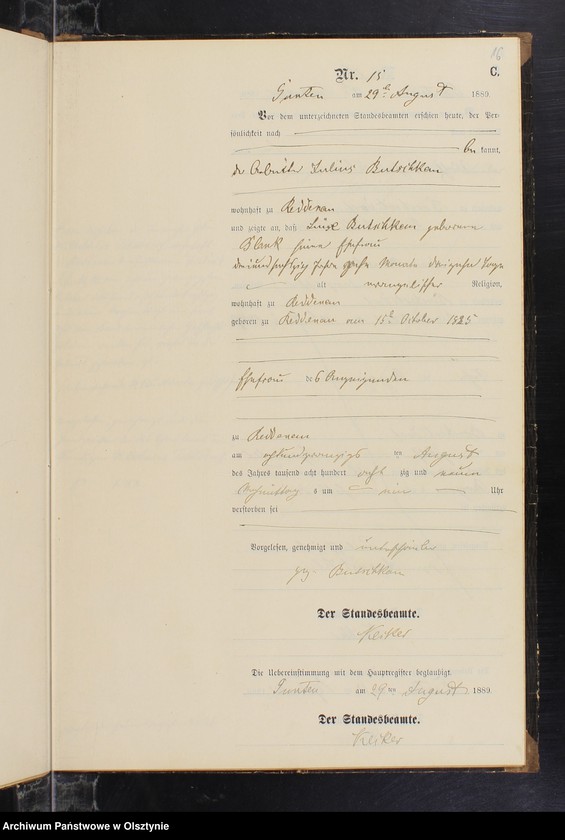 16
C.
Nr. 15
am 29 ten August 1889
Vor dem unterzeichneten Standesbeamten erschien heute, der Per-
sönlichkeit nach
be kannt,
der Arbeiter Julius Butschkau
wohnhaft zu Reddenau
und zeigte an, daß Butschkau geborene
seine Ehefrau
Jahre Monate Tage
alt evangelischer Religion,
wohnhaft zu Reddenau
geboren zu Reddenau am 15 ten October 1825
Ehefrau des Anzeigenden
zu Reddenau
am achtundzwanzigsten August
des Jahres tausend acht hundert acht zig und neun
Nachmittags um ein Uhr
verstorben sei
Vorgelesen, genehmigt und unterschrieben
gez. Butschkau
Der Standesbeamte.
Die Uebereinstimmung mit dem Hauptregister beglaubigt.
am 29 ten August 1889.
Der Standesbeamte.
Archiwum Państwowe w Olsztynie